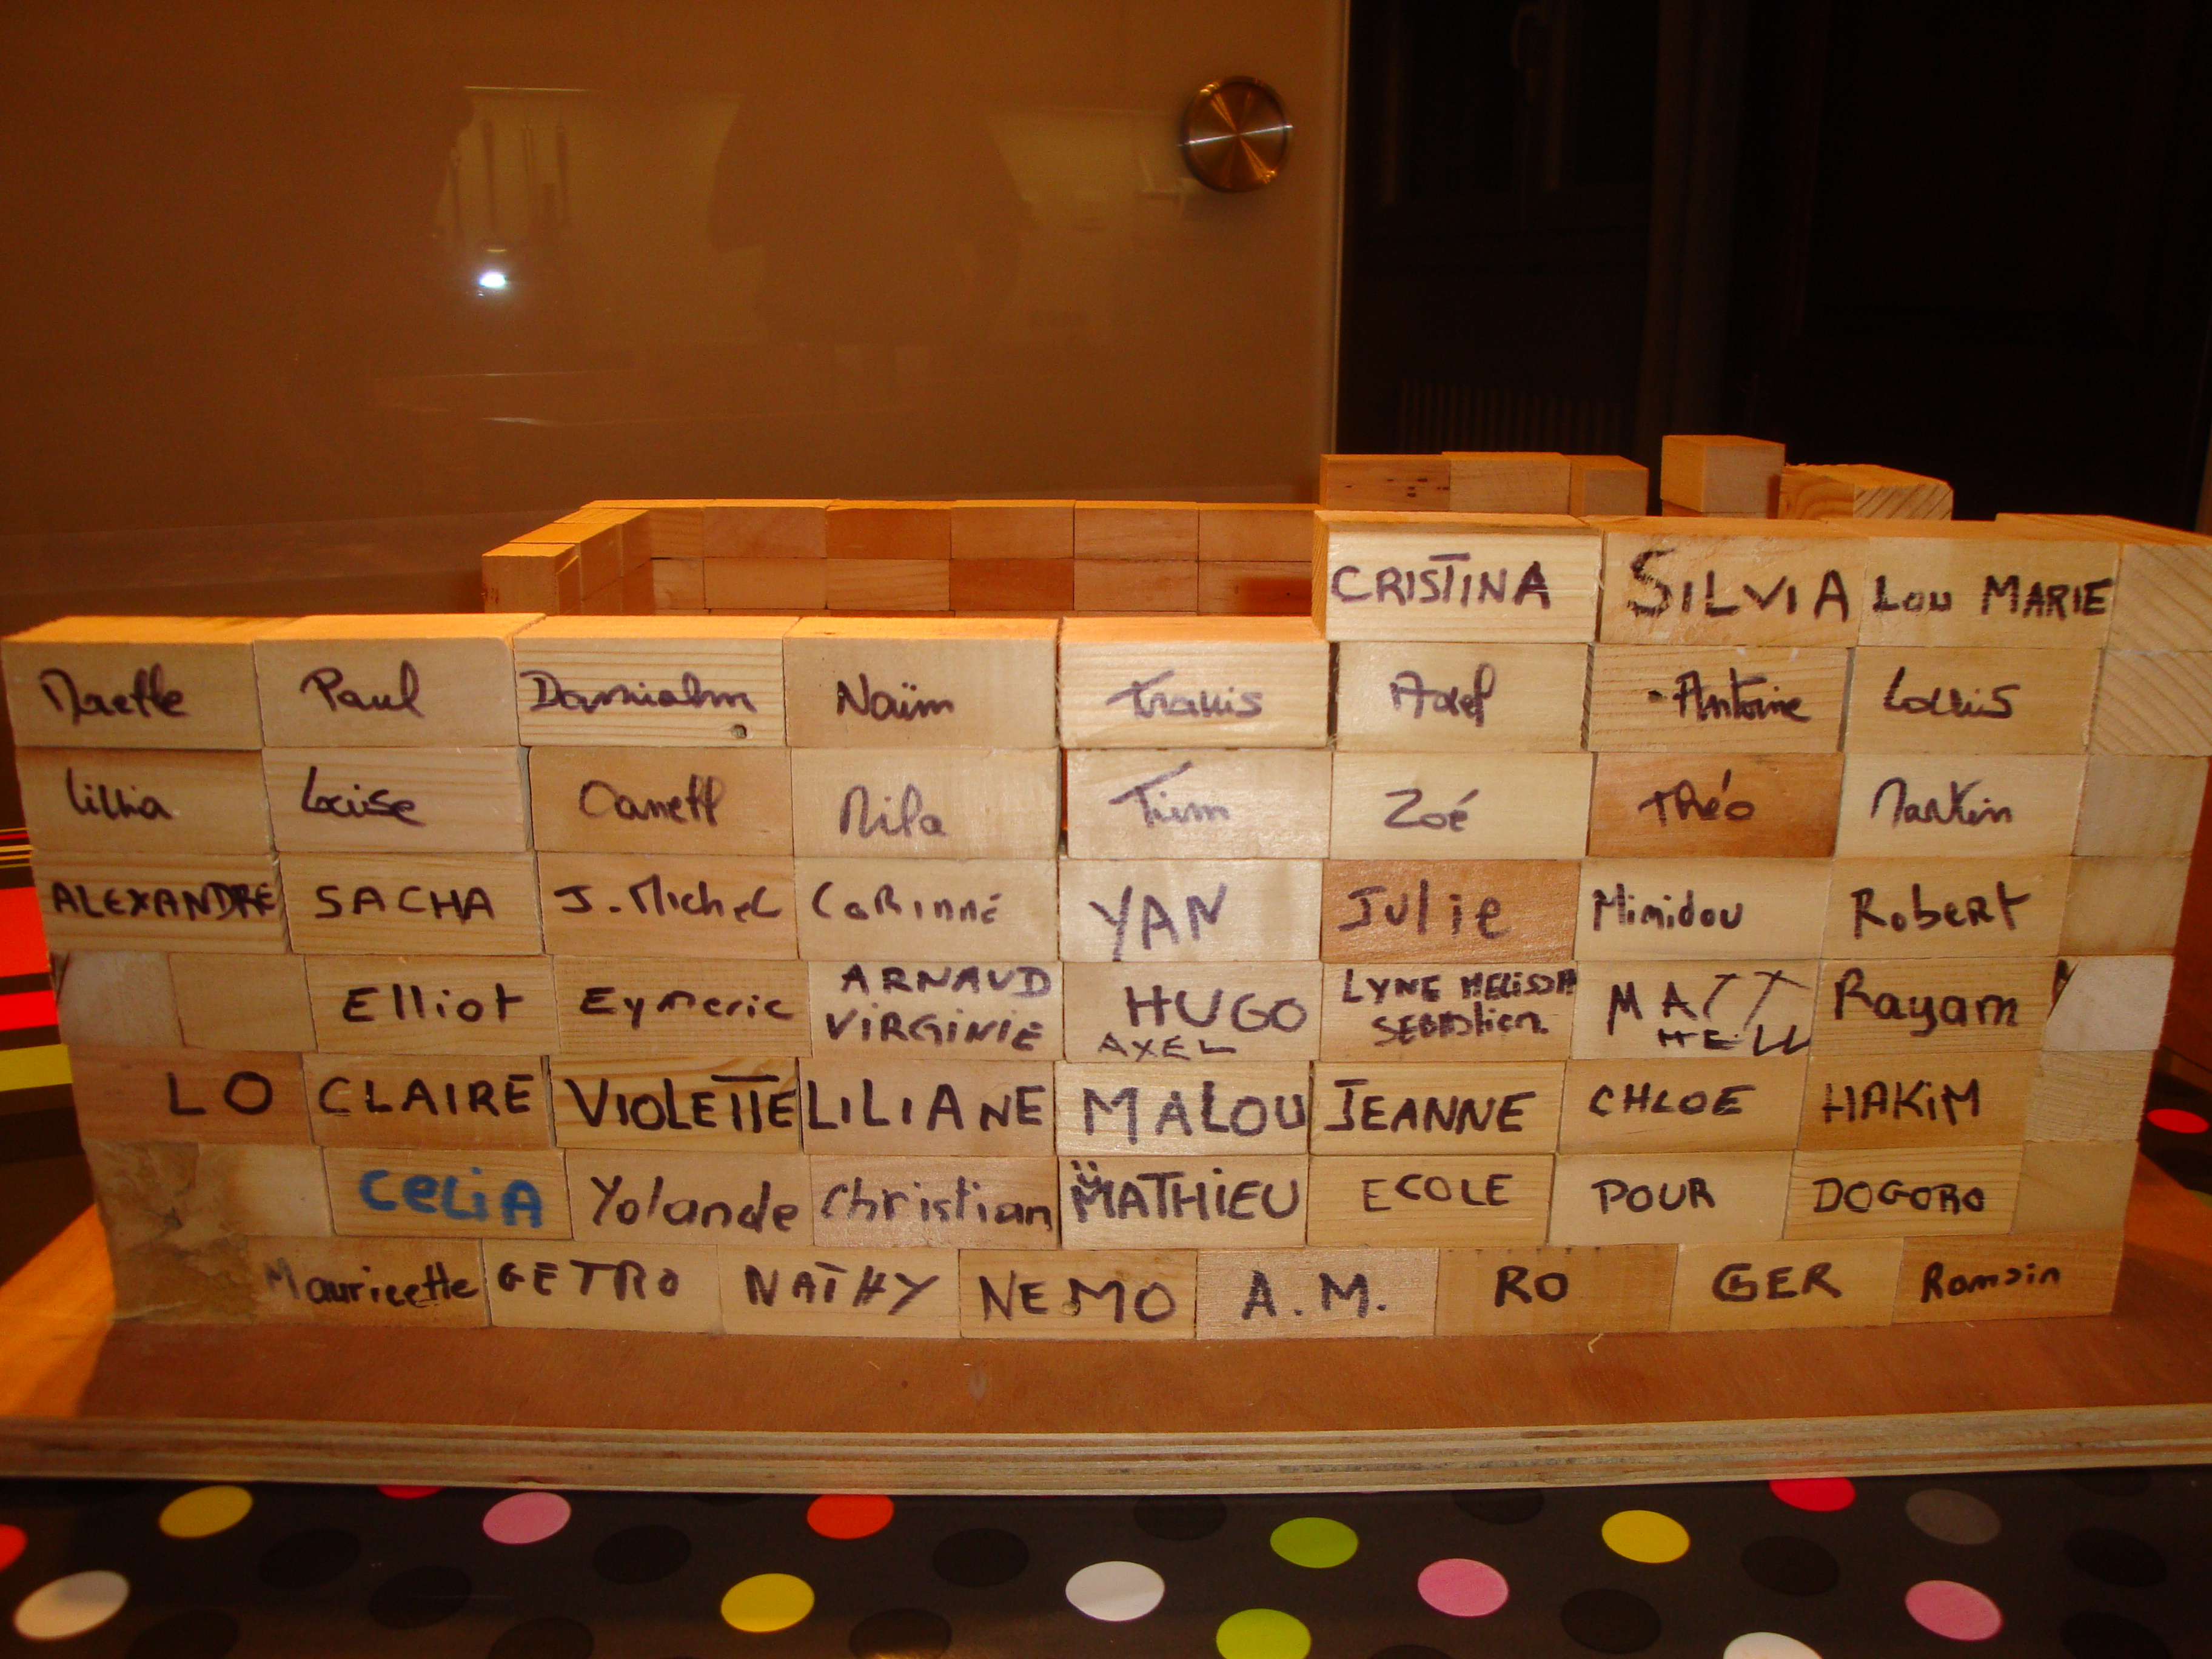 CRISTINA SILVIA LOU MARIE
Maelle Paul Naïm Axel Antoine Louis
Lillia Louise Mila Tim Zoé Théo Martin
ALEXANDRE SACHA J. Michel CoRinne YAN Julie Mimidou Robert
Elliot Eymeric ARNAUD HUGO LYNE MELISSA MATT Rayam
VIRGINIE AXEL SEBAStien
LO CLAIRE VIOLETTE LILIANE MALOU JEANNE CHLOE HAKIM
CELIA Yolande Christian MATHIEU ECOLE POUR DOGORO
Mauricette GETRO NATHY NEMO A.M. RO GER Romain